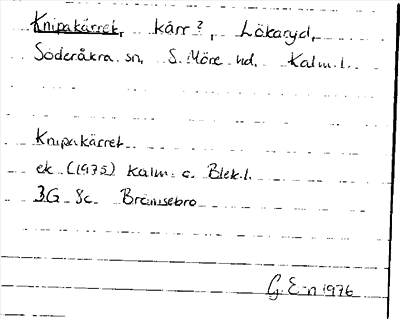 Knipakärret, kärr?, Lökaryd,
Söderåkra sn, S. Möre hd, Kalm. l.
Knipakärret
ek (1975) Kalm. o. Blek. l.
3G 8c Brömsebro
G. E-n 1976